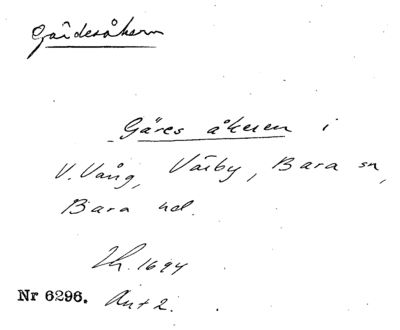 Gärdesåkern
Gäres åkeren i
V. Vång, Värby, Bara sn,
Bara hd.
Lh. 1694
Nr 6296. Ant 2.